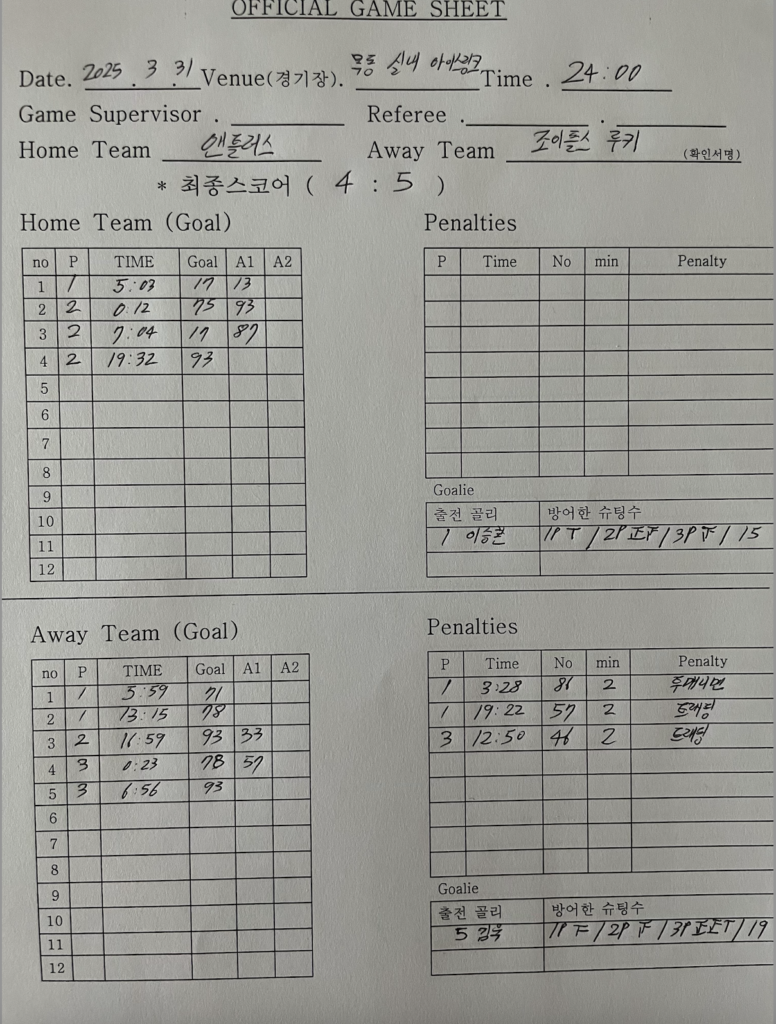 OFFICIAL GAME SHEET
Date. 2025 . 3 . 31 Venue(경기장). 목동 실내 아이스링크 Time . 24:00
Game Supervisor . Referee . .
Home Team 앤틀러스 Away Team 조이플스 루키 (확인서명)
* 최종스코어 ( 4 : 5 )
Home Team (Goal)
no P TIME Goal A1 A2
1 1 5:03 17 13
2 2 0:12 75 93
3 2 7:04 17 87
4 2 19:32 93
5
6
7
8
9
10
11
12
Penalties
P Time No min Penalty
Goalie
출전 골리 방어한 슈팅수
1 이승준 1P / 2P / 3P / 15
Away Team (Goal)
no P TIME Goal A1 A2
1 1 5:59 71
2 1 13:15 78
3 2 16:59 93 33
4 3 0:23 78 57
5 3 6:56 93
6
7
8
9
10
11
12
Penalties
P Time No min Penalty
1 3:28 86 2
1 19:22 57 2 트래핑
3 12:50 46 2 트래핑
Goalie
출전 골리 방어한 슈팅수
5 김욱 1P / 2P / 3P / 19